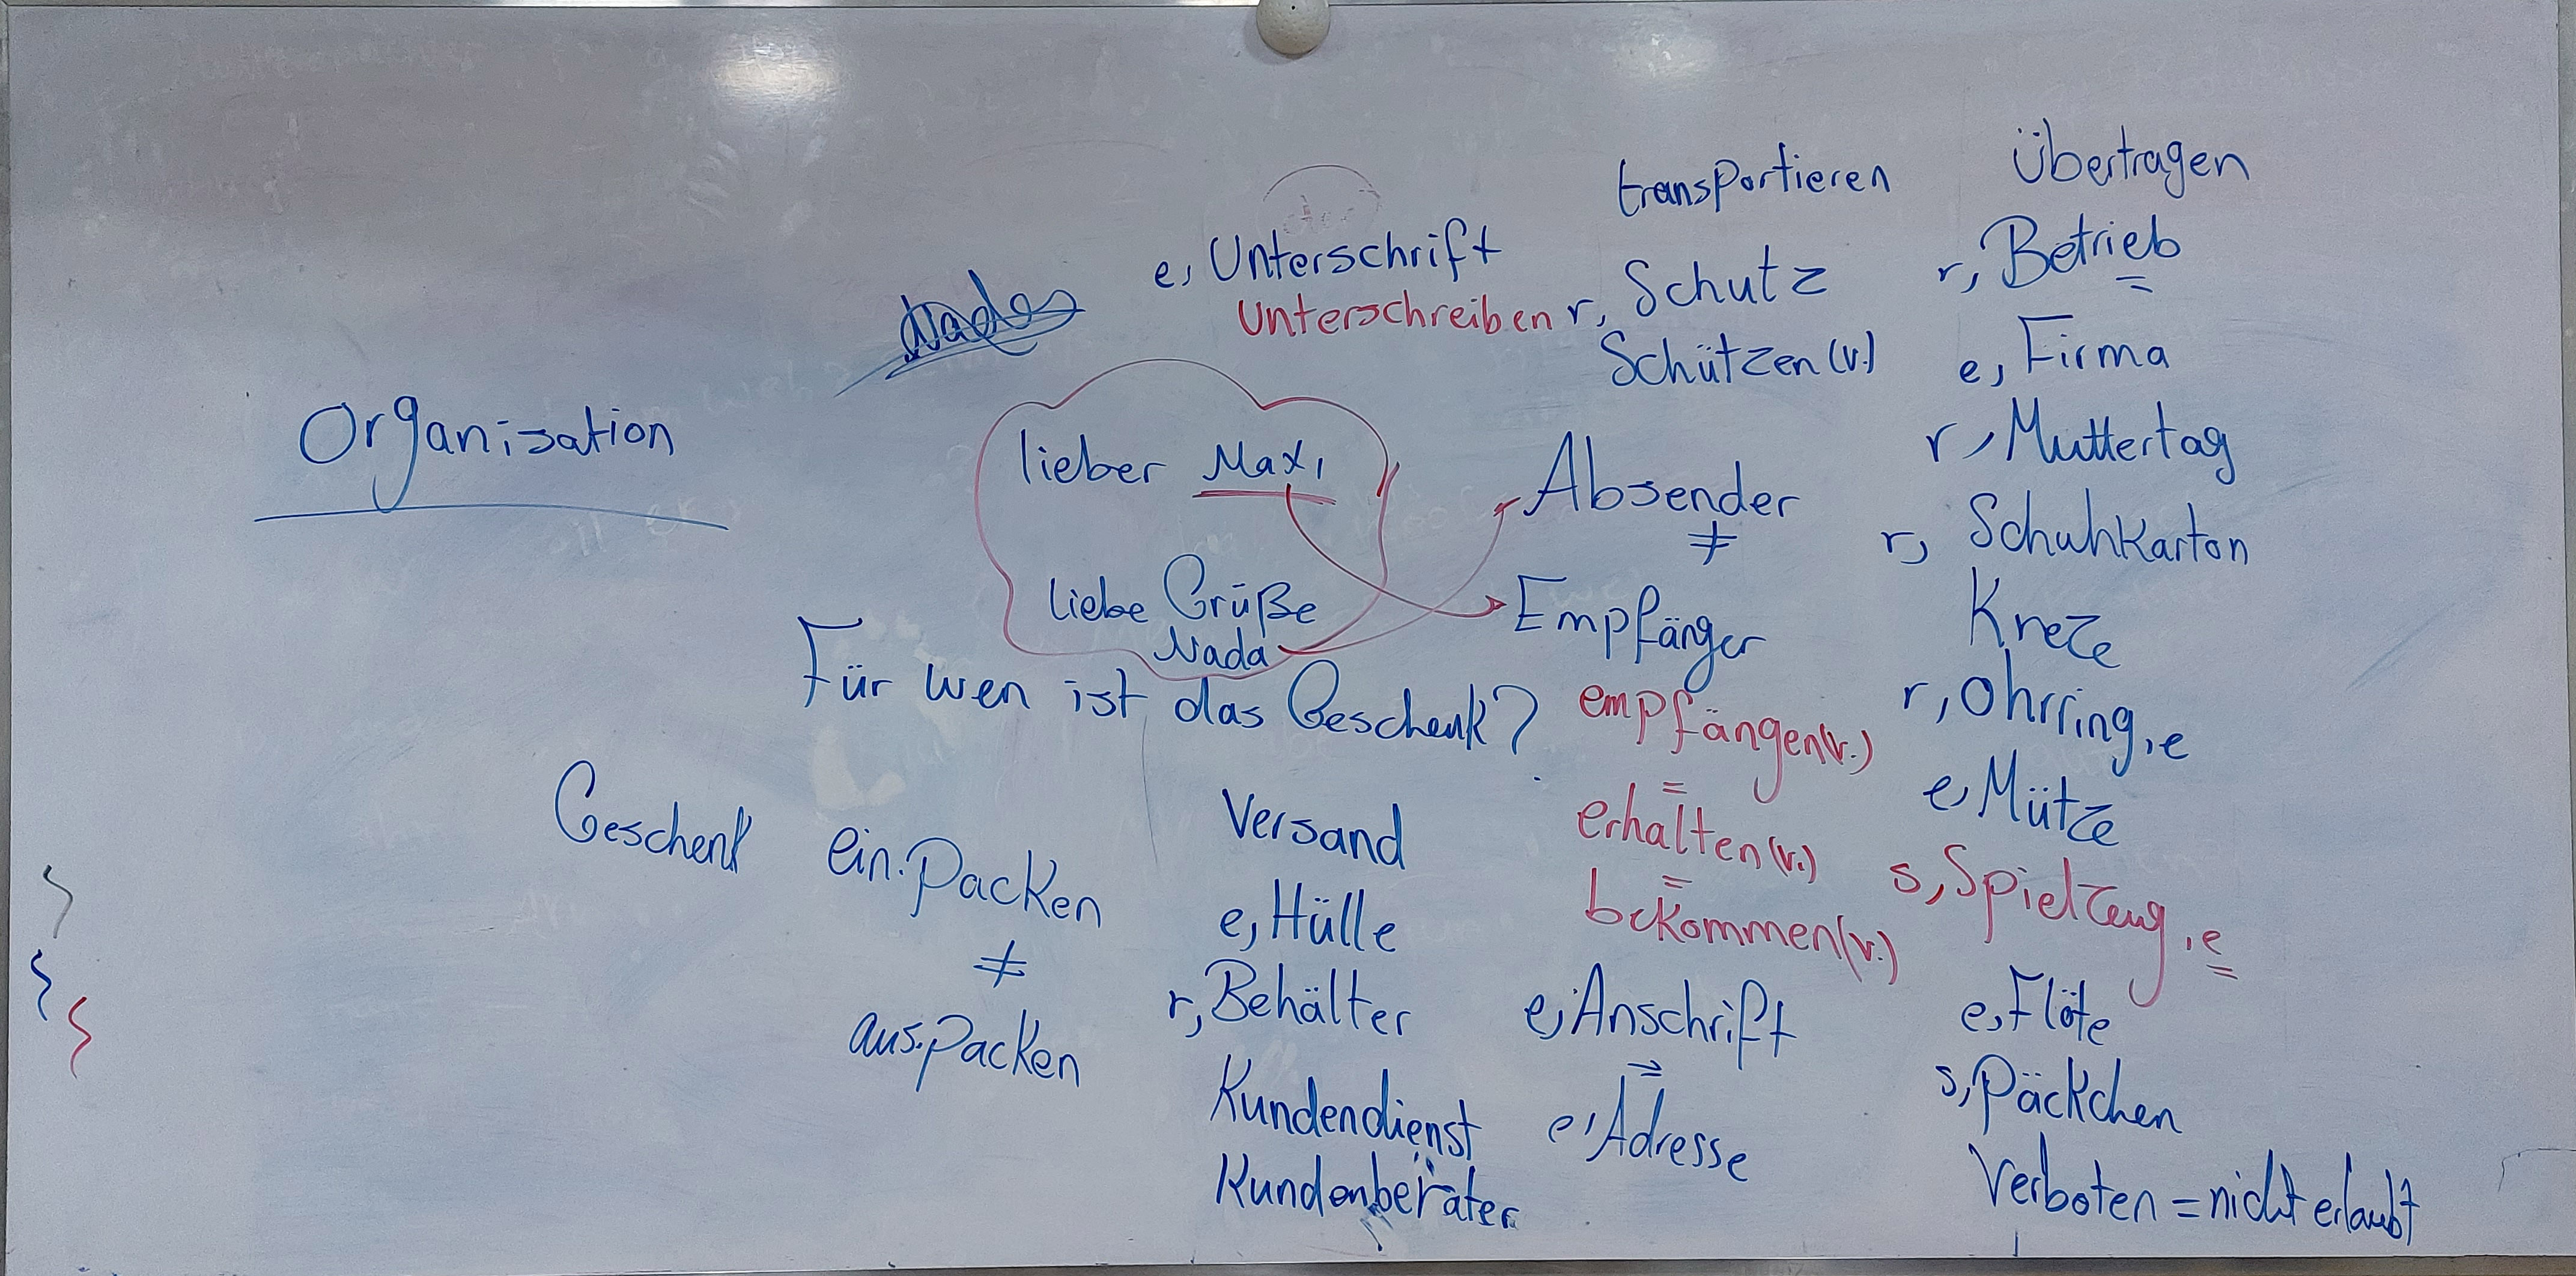 Organisation
e, Unterschrift
Unterschreiben
lieber Max,
liebe Grüße
Nada
Für wen ist das Geschenk?
Geschenk
ein.packen
≠
aus.packen
Versand
e, Hülle
r, Behälter
Kundendienst
Kundenberater
transportieren
r, Schutz
Schützen (v.)
Absender
≠
Empfänger
empfängen (v.)
=
erhalten (v.)
=
bekommen (v.)
e, Anschrift
=
e, Adresse
übertragen
r, Betrieb
e, Firma
r, Muttertag
r, Schuhkarton
Kreze
r, Ohrring, e
e, Mütze
s, Spielzeug, e
e, Flöte
s, Päckchen
Verboten = nicht erlaubt